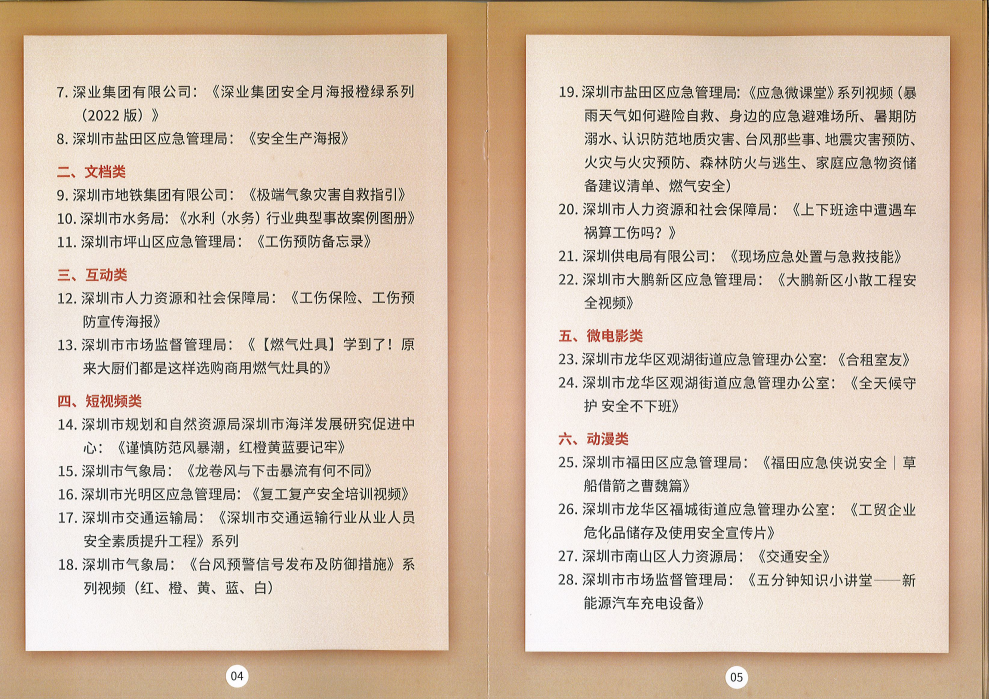 7. 深业集团有限公司：《深业集团安全月海报橙绿系列
（2022 版）》
8. 深圳市盐田区应急管理局：《安全生产海报》
二、文档类
9. 深圳市地铁集团有限公司：《极端气象灾害自救指引》
10. 深圳市水务局：《水利（水务）行业典型事故案例图册》
11. 深圳市坪山区应急管理局：《工伤预防备忘录》
三、互动类
12. 深圳市人力资源和社会保障局：《工伤保险、工伤预
防宣传海报》
13. 深圳市市场监督管理局：《【燃气灶具】学到了！原
来大厨们都是这样选购商用燃气灶具的》
四、短视频类
14. 深圳市规划和自然资源局深圳市海洋发展研究促进中
心：《谨慎防范风暴潮，红橙黄蓝要记牢》
15. 深圳市气象局：《龙卷风与下击暴流有何不同》
16. 深圳市光明区应急管理局：《复工复产安全培训视频》
17. 深圳市交通运输局：《深圳市交通运输行业从业人员
安全素质提升工程》系列
18. 深圳市气象局：《台风预警信号发布及防御措施》系
列视频（红、橙、黄、蓝、白）
04
19. 深圳市盐田区应急管理局：《应急微课堂》系列视频（暴
雨天气如何避险自救、身边的应急避难场所、暑期防
溺水、认识防范地质灾害、台风那些事、地震灾害预防、
火灾与火灾预防、森林防火与逃生、家庭应急物资储
备建议清单、燃气安全）
20. 深圳市人力资源和社会保障局：《上下班途中遭遇车
祸算工伤吗？》
21. 深圳供电局有限公司：《现场应急处置与急救技能》
22. 深圳市大鹏新区应急管理局：《大鹏新区小散工程安
全视频》
五、微电影类
23. 深圳市龙华区观湖街道应急管理办公室：《合租室友》
24. 深圳市龙华区观湖街道应急管理办公室：《全天候守
护 安全不下班》
六、动漫类
25. 深圳市福田区应急管理局：《福田应急侠说安全｜草
船借箭之曹魏篇》
26. 深圳市龙华区福城街道应急管理办公室：《工贸企业
危化品储存及使用安全宣传片》
27. 深圳市南山区人力资源局：《交通安全》
28. 深圳市市场监督管理局：《五分钟知识小讲堂——新
能源汽车充电设备》
05